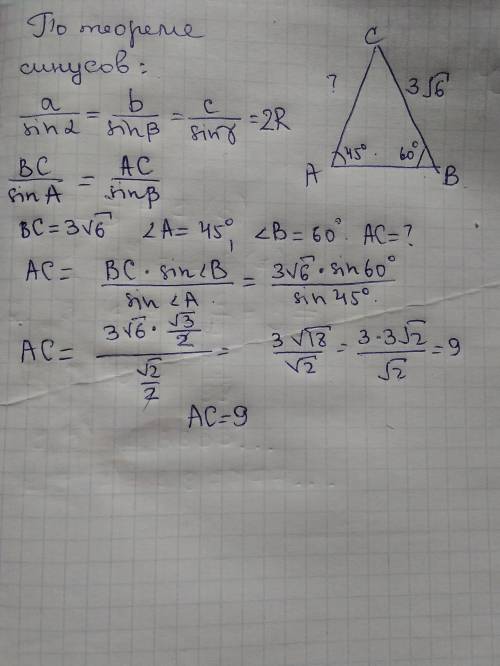 По теореме
синусов:
a/sinα = b/sinβ = c/sinγ = 2R
BC/sinA = AC/sinβ
BC=3√6 ∠A=45°, ∠B=60° AC=?
AC= BC·sin∠B/sin∠A = 3√6·sin60°/sin45°
AC= (3√6·√3/2)/(√2/2) = 3√18/√2 = 3·3√2/√2 = 9
AC=9
C
? 3√6
45° 60°
A B